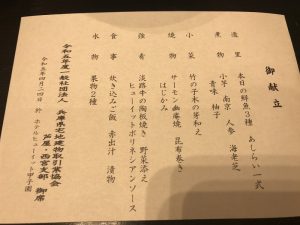 御献立
造里 本日の鮮魚3種 あしらい一式
煮物 小芋 南京 人参 海老芝
青味 柚子
小菜 竹の子木の芽和え
焼物 サーモン幽庵焼 昆布巻き
はじかみ
強肴 淡路牛の陶板焼き 野菜添え
ヒューイットポリネシアンソース
食事 炊き込みご飯 赤出汁 漬物
水物 果物2種
令和五年度一般社団法人 兵庫県宅地建物取引業協会
芦屋・西宮支部 御席
令和五年四月二四日 於 ホテルヒューイット甲子園